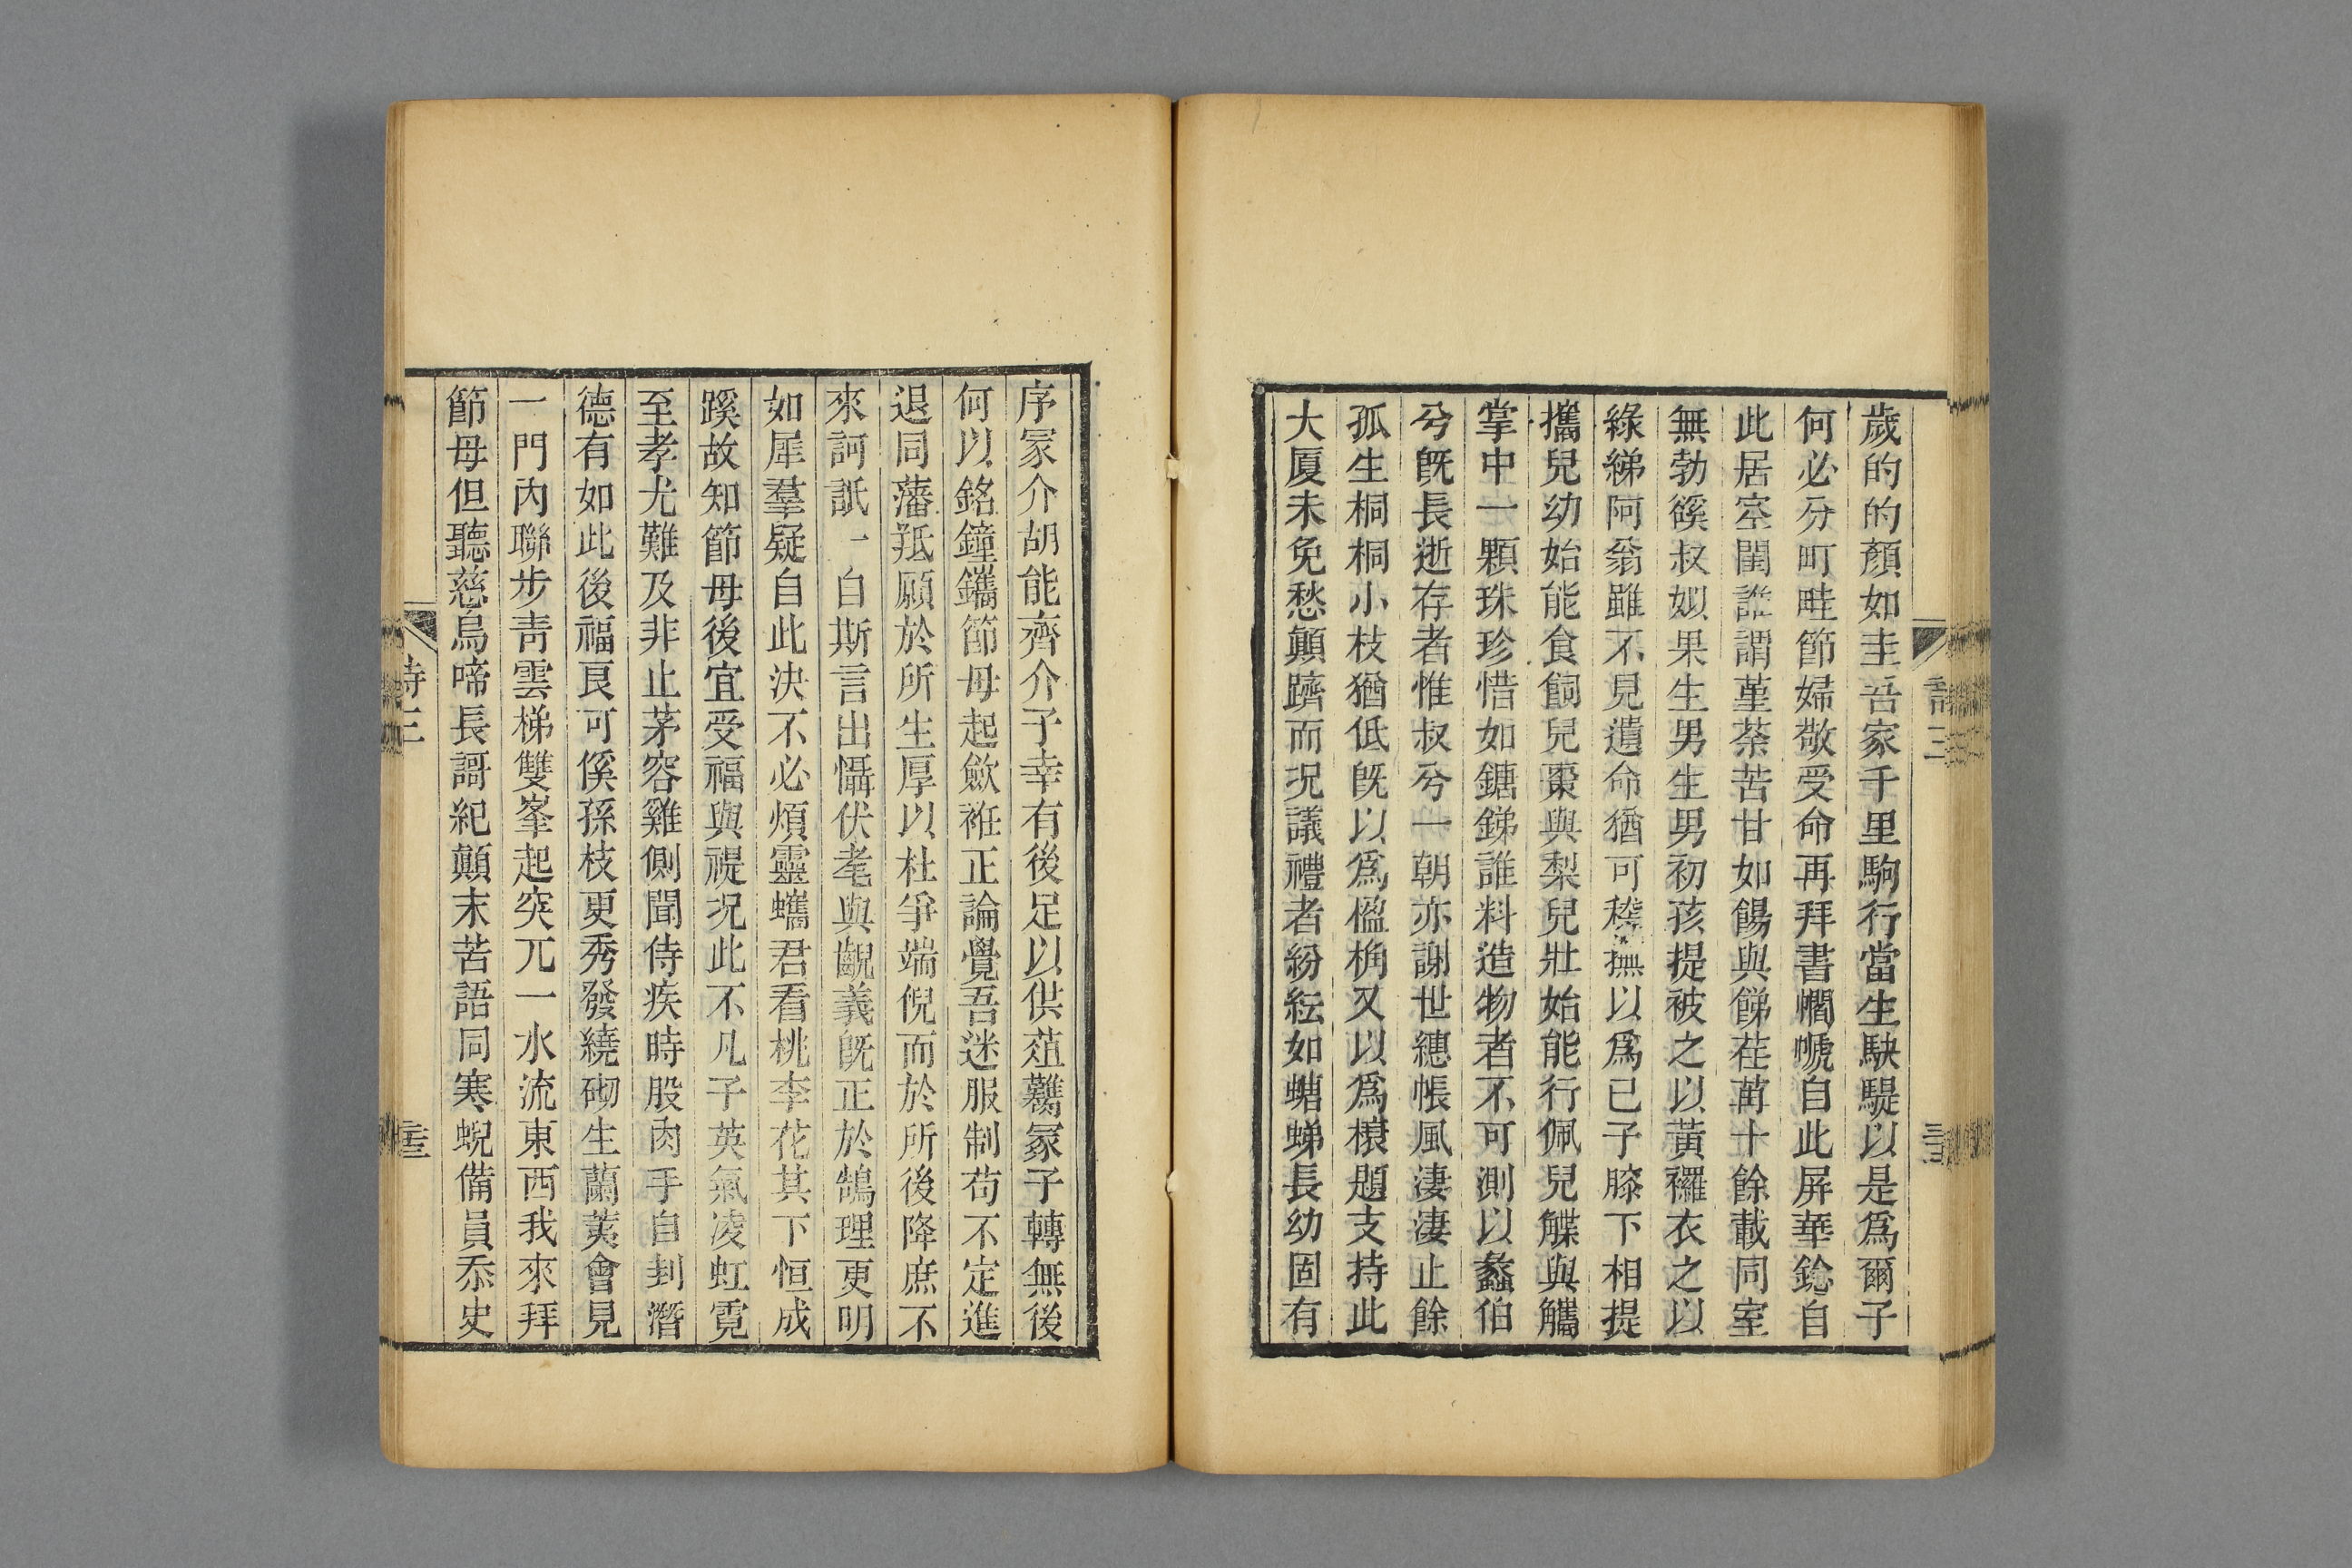 歲的的顏如圭吾家千里駒行當生駃騠以是爲爾子
何必分町畦節婦敬受命再拜書幱㡗自此屏華鈴自
此居空閨誰謂堇荼苦甘如餳與餳荏苒十餘載同室
無勃徯叔姒果生男生男初孩提被之以黃襹衣之以
綠綈阿翁雖不見遺命猶可稽撫以爲已子膝下相提
攜兒幼始能食飼兒棗與梨兒壯始能行佩兒韘與觿
掌中一顆珠珍惜如鎕銻誰料造物者不可測以蠡伯
兮旣長逝存者惟叔兮一朝亦謝世繐帳風淒淒止餘
孤生桐桐小枝猶低旣以爲楹桷又以爲榱題支持此
大厦未免愁顚躋而况議禮者紛紜如螗蜩長幼固有
詩三
序冢介胡能齊介子幸有後足以供葅虀冡子轉無後
何以銘鐘鑴節母起歛袵正論覺吾迷服制苟不定進
退同藩羝願於所生厚以杜爭端倪而於所後降庶不
來訶詆一自斯言出懾伏耄與齯義旣正於鵠理更明
如犀羣疑自此決不必煩靈蠵君看桃李花其下恒成
蹊故知節母後宜受福與禔况此不凡子英氣凌虹霓
至孝尤難及非止茅容雞側聞侍疾時股肉手自刲潛
德有如此後福良可傒孫枝更秀發繞砌生蘭荑會見
一門內聯步靑雲梯雙峯起突兀一水流東西我來拜
節母但聽慈烏啼長謌紀顚末苦語同寒蜺備員忝史
詩三